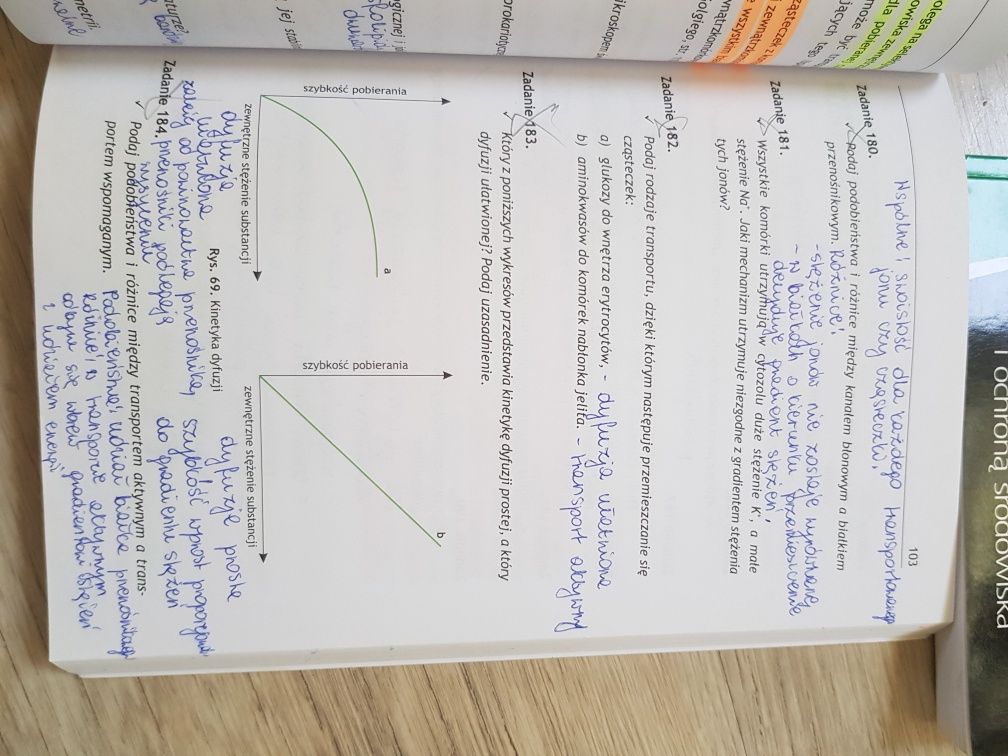 103
Wspólne: swoistość dla każdego transportowanego
jonu czy cząsteczki,
Zadanie 180.
Podaj podobieństwa i różnice między kanałem błonowym a białkiem
przenośnikowym. Różnice:
- stężenie jonów nie zostaje wyrównane
- w białkach o kierunku przemieszczenia
decyduje gradient stężeń,
Zadanie 181.
Wszystkie komórki utrzymują w cytozolu duże stężenie K⁺, a małe
stężenie Na⁺. Jaki mechanizm utrzymuje niezgodne z gradientem stężenia
tych jonów?
Zadanie 182.
Podaj rodzaje transportu, dzięki którym następuje przemieszczanie się
cząsteczek:
a) glukozy do wnętrza erytrocytów, - dyfuzja ułatwiona
b) aminokwasów do komórek nabłonka jelita. - transport aktywny
Zadanie 183.
Który z poniższych wykresów przedstawia kinetykę dyfuzji prostej, a który
dyfuzji ułatwionej? Podaj uzasadnienie.
szybkość pobierania
a
zewnętrzne stężenie substancji
szybkość pobierania
b
zewnętrzne stężenie substancji
Rys. 69. Kinetyka dyfuzji
dyfuzja
ułatwiona
zależy od powinowactwa przenośnika,
przenośniki podlegają
wysyceniu
dyfuzja prosta
szybkość wprost proporcjonalna
do gradientu stężeń
Zadanie 184.
Podaj podobieństwa i różnice między transportem aktywnym a trans-
portem wspomaganym.
Podobieństwa: udział białka przenośnikowego
Różnice: w transporcie aktywnym
odbywa się wbrew gradientowi stężeń
z udziałem energii
ochroną środowiska